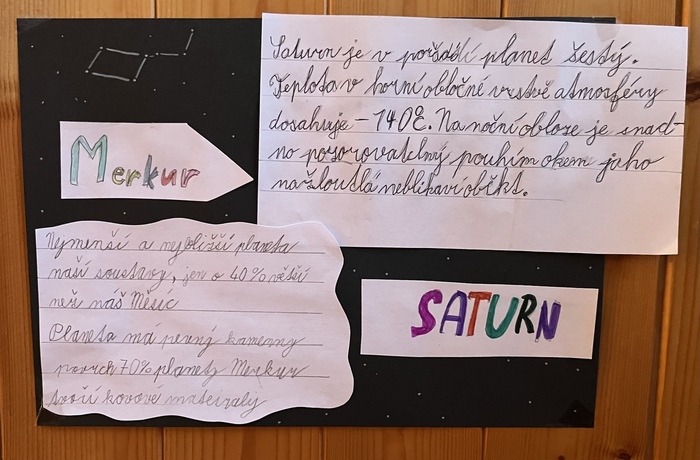 Saturn je v pořadí planet šestý.
Teplota v horní obločné vrstvě atmosféry
dosahuje -140°C. Na noční obloze je snad-
no pozorovatelný pouhím okem jaho
nažloutlá neblikaví občkt.
Merkur
Nejmenší a nejbližší planeta
naší soustavy, jen o 40% větší
než náš Měsíc
Planeta má pevný kamenny
povrch 70% planety Merkur
tvoří kovové materialy
SATURN